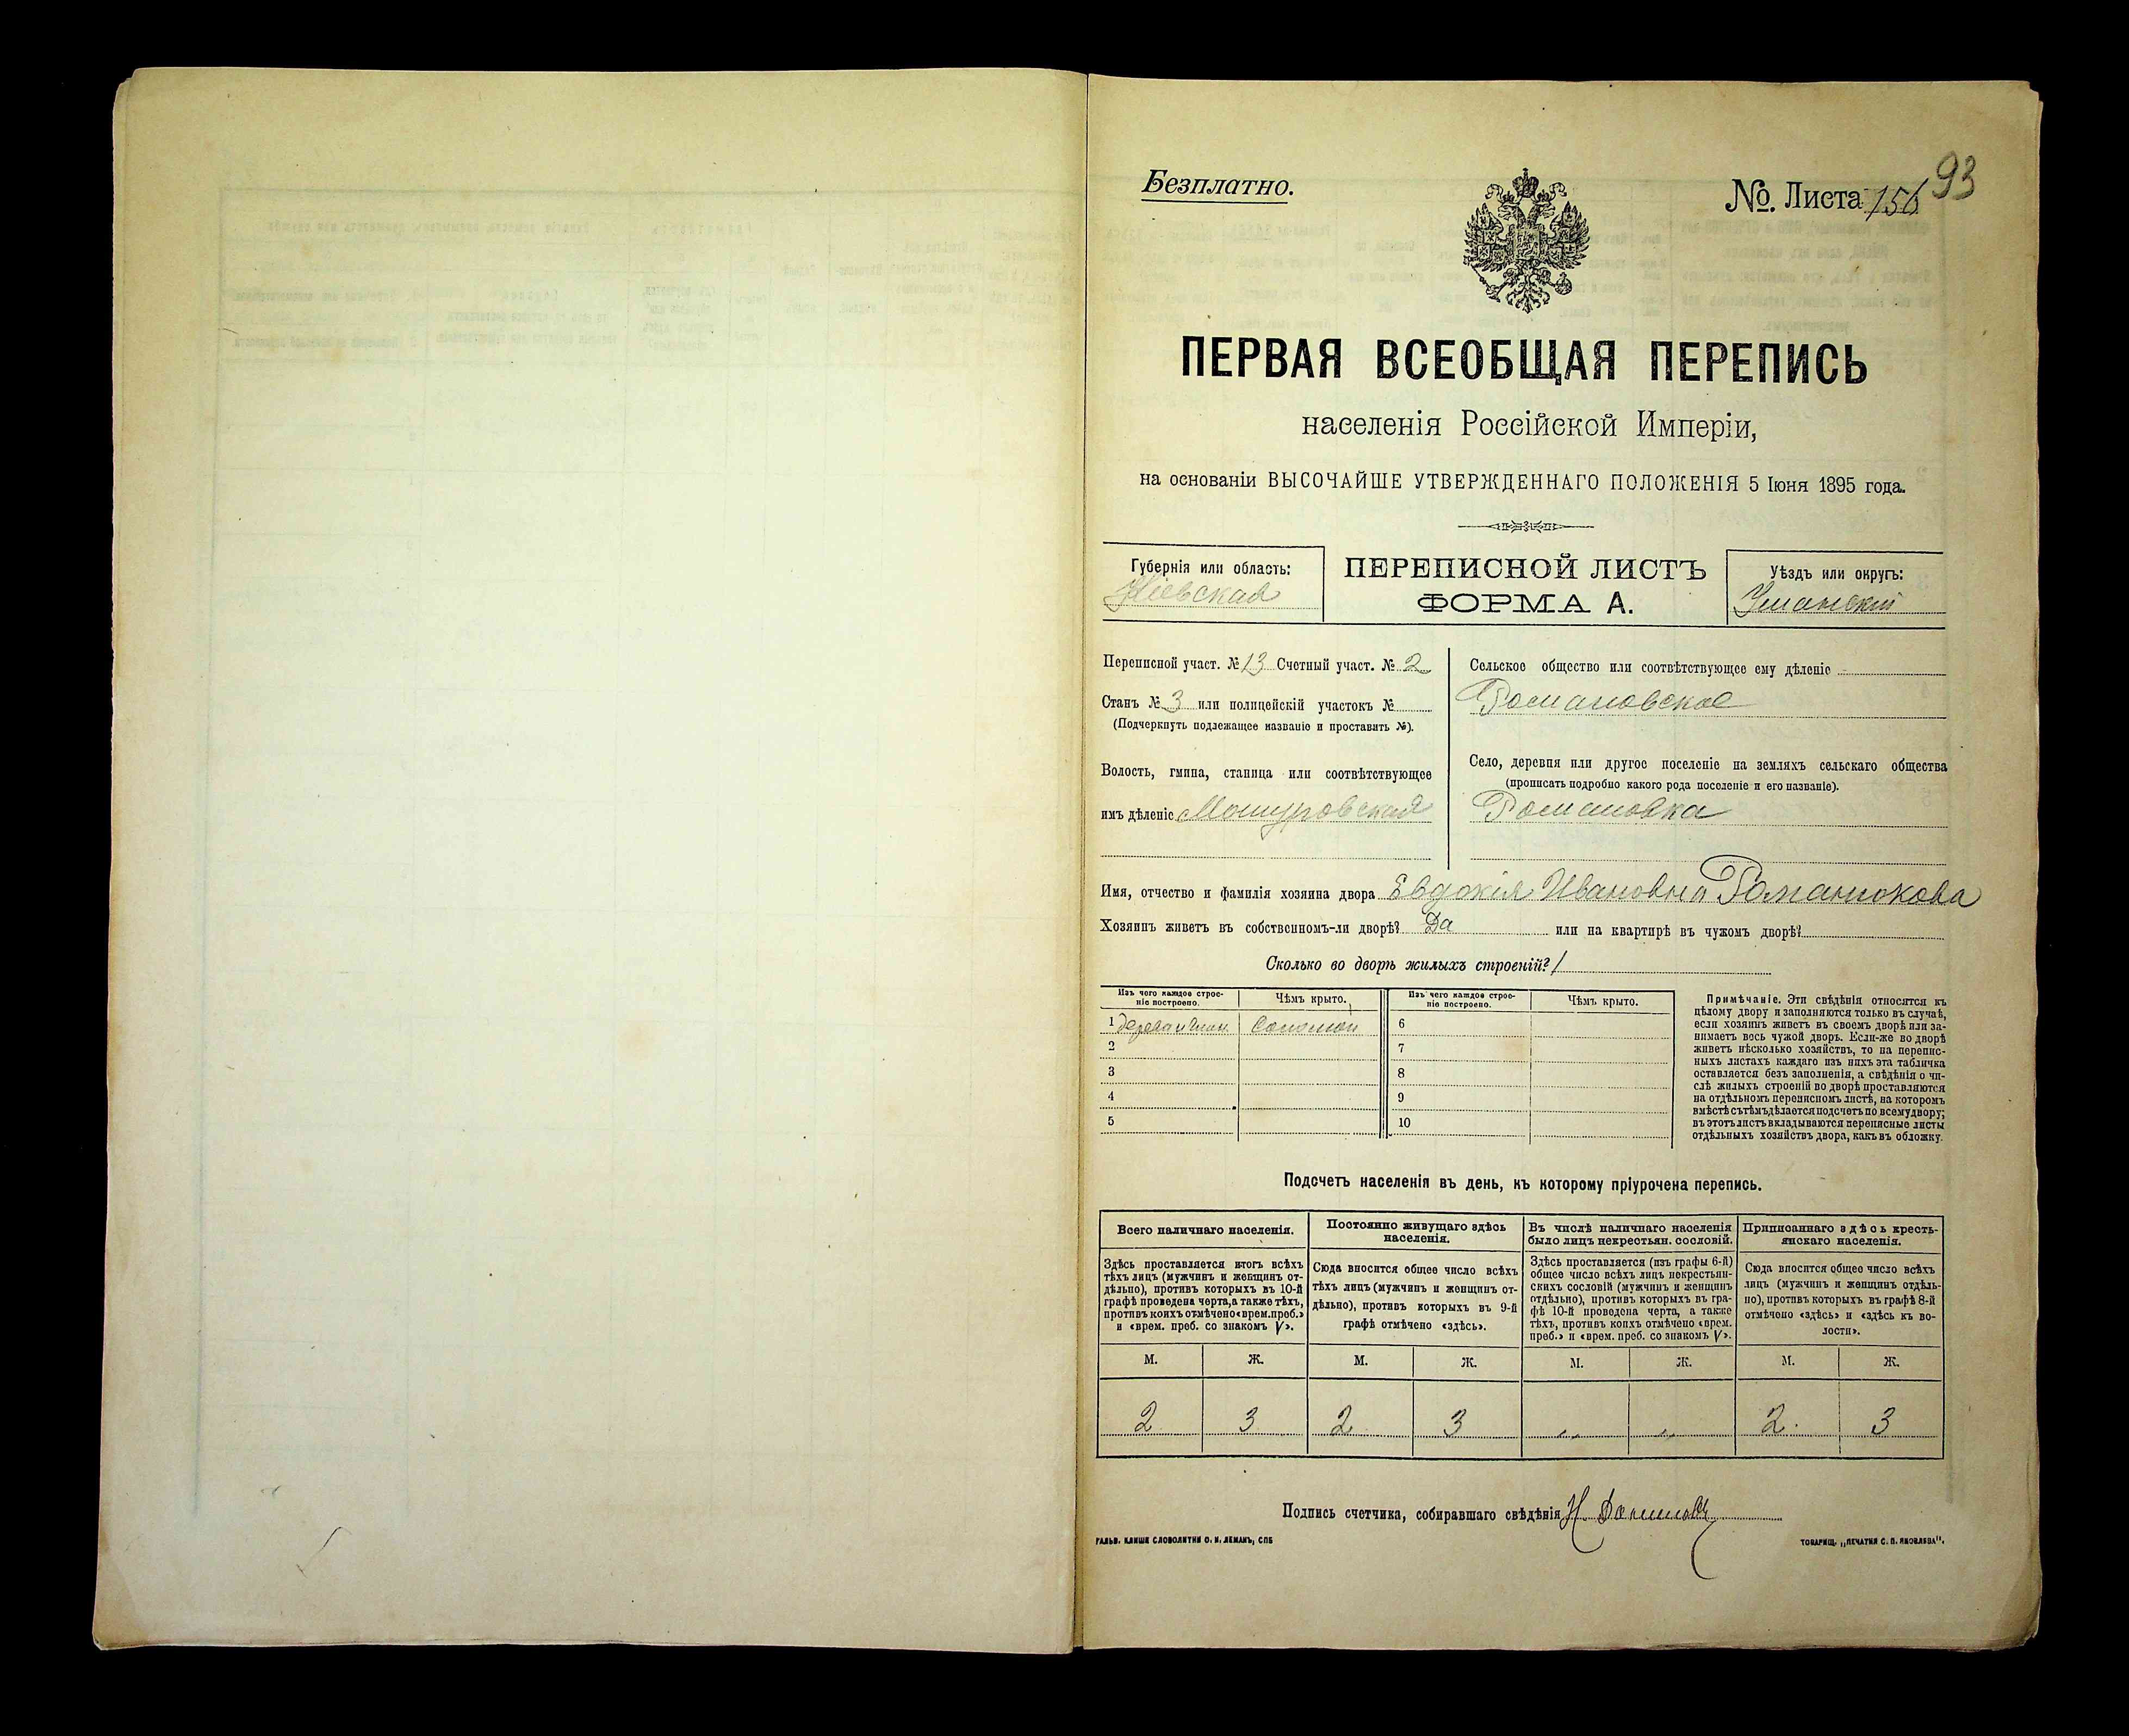 Безплатно.
№ Листа 156
93
ПЕРВАЯ ВСЕОБЩАЯ ПЕРЕПИСЬ
населенія Россійской Имперіи,
на основаніи ВЫСОЧАЙШЕ УТВЕРЖДЕННАГО ПОЛОЖЕНІЯ 5 Іюня 1895 года.
Губернія или область:
Кіевская
ПЕРЕПИСНОЙ ЛИСТЪ
ФОРМА А.
Уѣздъ или округъ:
Уманскій
Переписной участ. № 13 Счетный участ. № 2
Станъ № 3 или полицейскій участокъ №
(Подчеркнуть подлежащее названіе и проставить №).
Волость, гмина, станица или соотвѣтствующее
имъ дѣленіе Мошуровская
Сельское общество или соотвѣтствующее ему дѣленіе
Романовское
Село, деревня или другое поселеніе на земляхъ сельскаго общества
(прописать подробно какого рода поселеніе и его названіе).
Романовка
Имя, отчество и фамилія хозяина двора Евдокія Ивановна Романюкова
Хозяинъ живетъ въ собственномъ-ли дворѣ? Да или на квартирѣ въ чужомъ дворѣ?
Сколько во дворѣ жилыхъ строеній? 1
Изъ чего каждое строе-
ніе построено.
Чѣмъ крыто.
Изъ чего каждое строе-
ніе построено.
Чѣмъ крыто.
1 дерева и глин. Соломой
2
3
4
5
6
7
8
9
10
Примѣчаніе. Эти свѣдѣнія относятся къ
цѣлому двору и заполняются только въ случаѣ,
если хозяинъ живетъ въ своемъ дворѣ или за-
нимаетъ весь чужой дворъ. Если-же во дворѣ
живетъ нѣсколько хозяйствъ, то на перепис-
ныхъ листахъ каждаго изъ нихъ эта табличка
оставляется безъ заполненія, а свѣдѣнія о чи-
слѣ жилыхъ строеній во дворѣ проставляются
на отдѣльномъ переписномъ листѣ, на которомъ
вмѣстѣ съ тѣмъ дѣлается подсчетъ по всему двору;
въ этотъ листъ вкладываются переписные листы
отдѣльныхъ хозяйствъ двора, какъ въ обложку.
Подсчетъ населенія въ день, къ которому пріурочена перепись.
Всего наличнаго населенія.
Здѣсь проставляется итогъ всѣхъ
тѣхъ лицъ (мужчинъ и женщинъ от-
дѣльно), противъ которыхъ въ 10-й
графѣ проведена черта, а также тѣхъ,
противъ коихъ отмѣчено «врем. преб.»
и «врем. преб. со знакомъ V».
Постоянно живущаго здѣсь
населенія.
Сюда вносится общее число всѣхъ
тѣхъ лицъ (мужчинъ и женщинъ от-
дѣльно), противъ которыхъ въ 9-й
графѣ отмѣчено «здѣсь».
Въ числѣ наличнаго населенія
было лицъ некрестьян. сословій.
Здѣсь проставляется (изъ графы 6-й)
общее число всѣхъ лицъ некрестьян-
скихъ сословій (мужчинъ и женщинъ
отдѣльно), противъ которыхъ въ гра-
фѣ 10-й проведена черта, а также
тѣхъ, противъ коихъ отмѣчено «врем.
преб.» и «врем. преб. со знакомъ V».
Приписаннаго здѣсь кресть-
янскаго населенія.
Сюда вносится общее число всѣхъ
лицъ (мужчинъ и женщинъ отдѣль-
но), противъ которыхъ въ графѣ 8-й
отмѣчено «здѣсь» и «здѣсь къ во-
лости».
М. Ж. М. Ж. М. Ж. М. Ж.
2 3 2 3 „ „ 2 3
Подпись счетчика, собиравшаго свѣдѣнія Н.
ГАЛЬВ. КЛИШЕ СЛОВОЛИТНИ О. И. ЛЕМАНЪ, СПБ
ТОВАРИЩ. „ПЕЧАТНЯ С. П. ЯКОВЛЕВА".